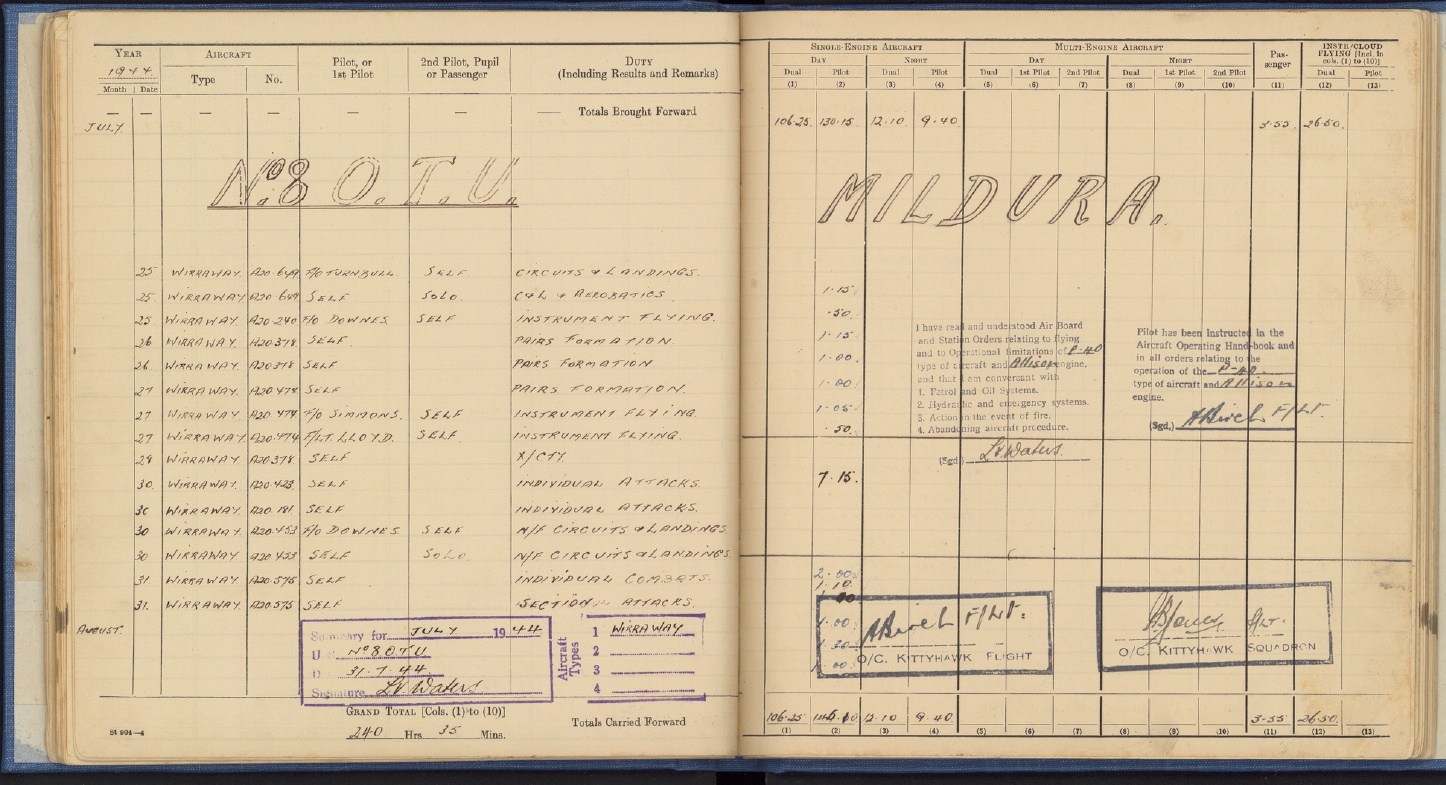 YEAR AIRCRAFT Pilot, or 1st Pilot 2nd Pilot, Pupil or Passenger DUTY (Including Results and Remarks)
1944 Type No.
Month Date
— — — — — — —— Totals Brought Forward
JULY.
No. 8 O.T.U.
25 WIRRAWAY. A20·649 F/O TURNBULL. SELF CIRCUITS & LANDINGS.
25 WIRRAWAY A20·649 SELF SOLO. C&L & AEROBATICS.
25 WIRRAWAY. A20·240 F/O DOWNES. SELF INSTRUMENT FLYING.
26 WIRRAWAY. A20.378 SELF. PAIRS FORMATION.
26 WIRRAWAY. A20378 SELF PAIRS FORMATION
27 WIRRAWAY. A20.474 SELF PAIRS FORMATION.
27 WIRRAWAY. A20.474 F/O SIMMONS. SELF INSTRUMENT FLYING.
27 WIRRAWAY. A20.474 F/LT. LLOYD. SELF INSTRUMENT FLYING.
28 WIRRAWAY. A20.378 SELF X/CTY.
30. WIRRAWAY. A20·423 SELF INDIVIDUAL ATTACKS.
30 WIRRAWAY. A20 181 SELF INDIVIDUAL ATTACKS.
30 WIRRAWAY. A20·453 F/O DOWNES. SELF N/F CIRCUITS & LANDINGS
30 WIRRAWAY A20 453 SELF SOLO. N/F CIRCUITS & LANDINGS
31 WIRRAWAY A20.575 SELF INDIVIDUAL COMBATS.
31. WIRRAWAY. A20.575 SELF SECTION ATTACKS.
AUGUST.
Summary for JULY 1944
U No 8 O T U
D 31·7·44
Signature L.V. Waters
Aircraft Types
1 WIRRAWAY
2
3
4
GRAND TOTAL [Cols. (1) to (10)]
240 Hrs 35 Mins.
Totals Carried Forward
St 904—4
SINGLE-ENGINE AIRCRAFT MULTI-ENGINE AIRCRAFT Pas-senger INSTR/CLOUD FLYING [Incl. in cols. (1) to (10)]
DAY NIGHT DAY NIGHT
Dual Pilot Dual Pilot Dual 1st Pilot 2nd Pilot Dual 1st Pilot 2nd Pilot Dual Pilot
(1) (2) (3) (4) (5) (6) (7) (8) (9) (10) (11) (12) (13)
106·25 130·15 12·10 9·40 3·55 26·50
MILDURA.
1·15
·50.
1·15
1·00.
1·00
1·05
·50
7·15.
2·00
1·10
1·00
1·30
1·00
I have read and understood Air Board
and Station Orders relating to flying
and to Operational limitations of P-40
type of aircraft and Allison engine,
and that I am conversant with
1. Petrol and Oil Systems.
2. Hydraulic and emergency systems.
3. Action in the event of fire.
4. Abandoning aircraft procedure.
(Sgd.) L.V. Waters.
Pilot has been instructed in the
Aircraft Operating Hand-book and
in all orders relating to the
operation of the P-40
type of aircraft and Allison
engine.
(Sgd.) A Birch F/Lt.
A Birch F/Lt.
O/C. KITTYHAWK FLIGHT
F/Lt.
O/C. KITTYHAWK SQUADRON
106-25 12·10 9·40 3·55 26·50
(1) (2) (3) (4) (5) (6) (7) (8) (9) (10) (11) (12) (13)